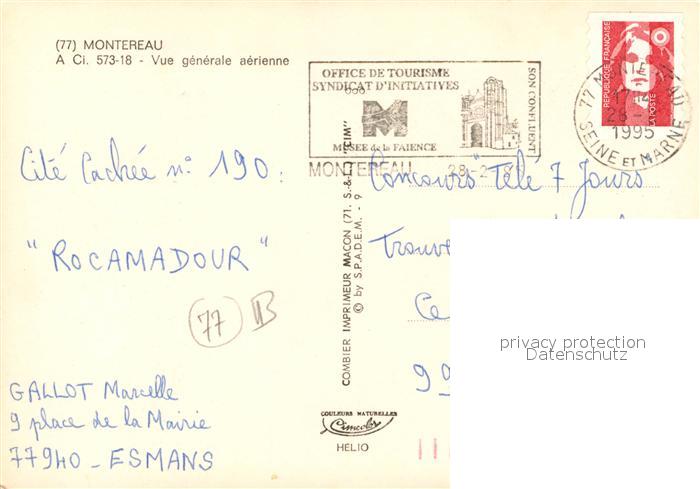 (77) MONTEREAU
A Ci. 573-18 - Vue générale aérienne
Cité Cachée n° 190:
"ROCAMADOUR"
77 B
GALLOT Marcelle
9 place de la Mairie
77940 - ESMANS
OFFICE DE TOURISME
SYNDICAT D'INITIATIVES
M
MUSEE de la FAIENCE
SON CONFLUENT
MONTEREAU 28-2
REPUBLIQUE FRANÇAISE
LA POSTE
77 M
28
1995
SEINE ET MARNE
COMBIER IMPRIMEUR MACON (71. S.-&-L.) "CIM"
© by S.P.A.D.E.M. - 9
COULEURS NATURELLES
Cimcolor
HELIO
Concours "Télé 7 Jours
Trouve
Ce
99
privacy protection
Datenschutz